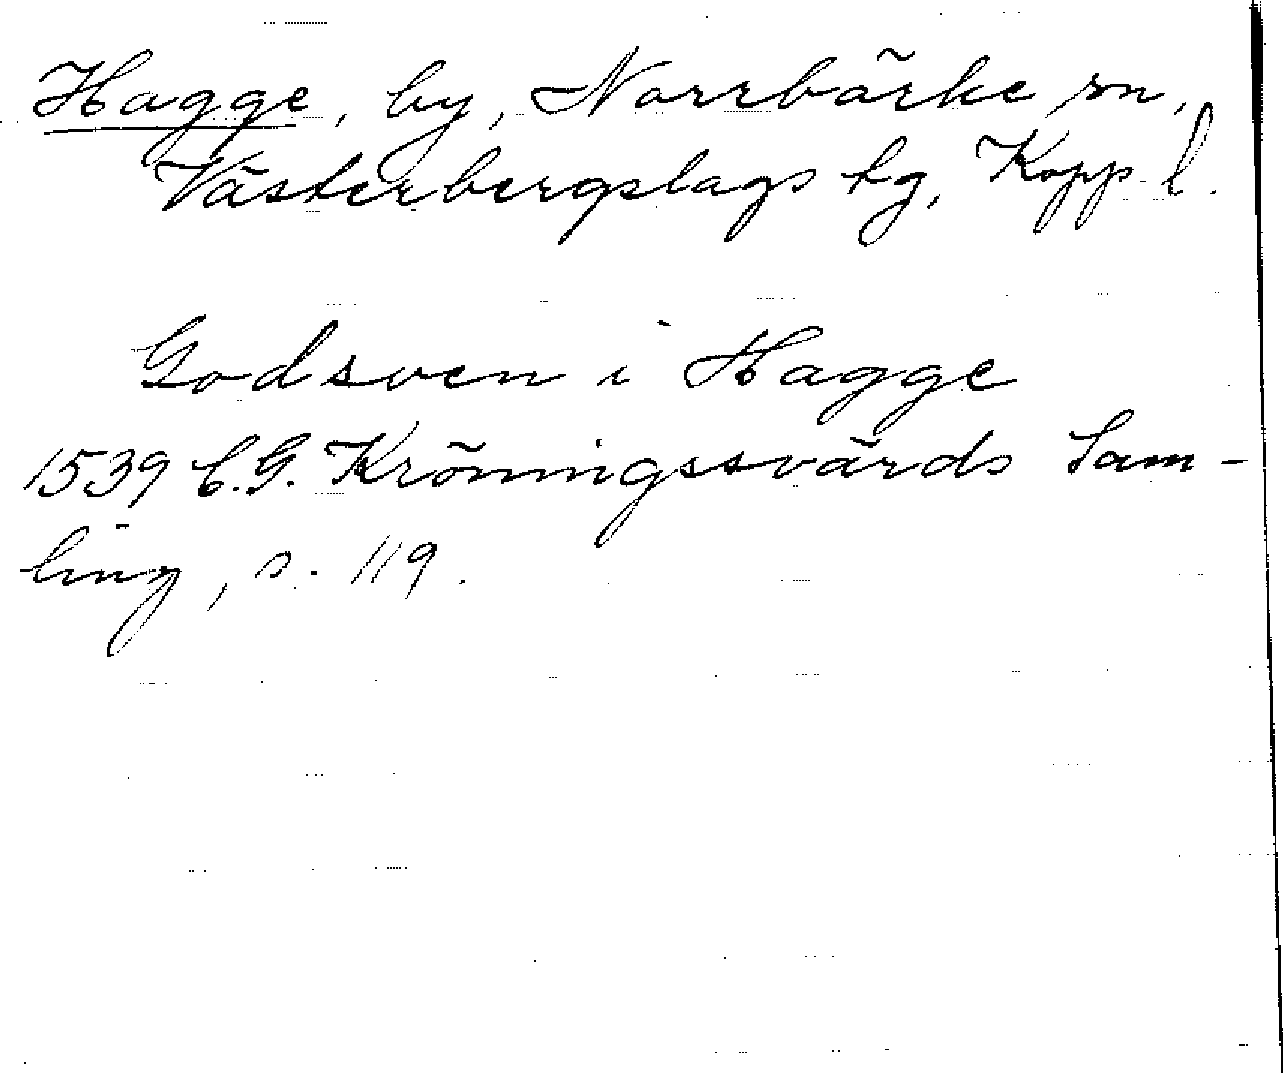 Hagge, by, Norrbärke sn,
Västerbergslags tg, Kopp l.
Godsven i Hagge
1539 C.G. Kröningssvärds Sam-
ling, s. 119.